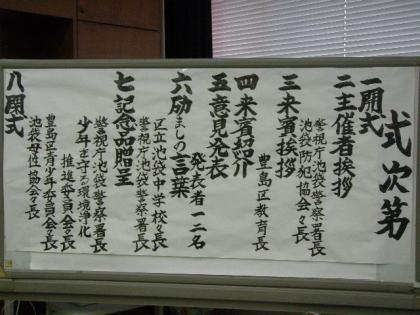 式次第
一開式
二主催者挨拶
池袋防犯協会々長
警視庁池袋警察署長
三来賓挨拶
豊島区教育長
四来賓紹介
五意見発表
発表者一二名
六励ましの言葉
区立池袋中学校々長
警視庁池袋警察署長
七記念品贈呈
警視庁池袋警察署長
少年を守る環境浄化
推進委員会々長
豊島区青少年委員会々長
池袋母性協会々長
八閉式